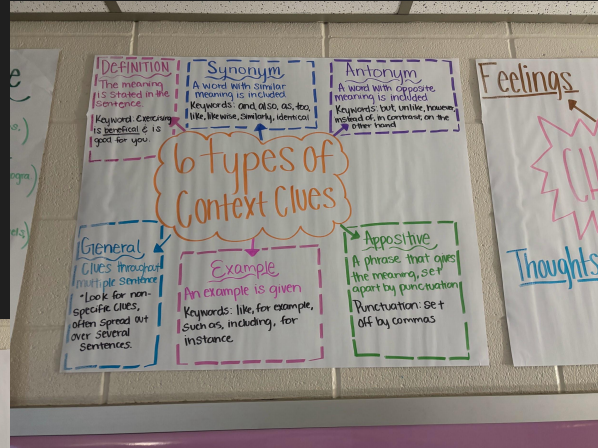 DEFINITION
The meaning
is stated in the
sentence
Keyword: Exercising
is benefical & is
good for you.
Synonym
A word with similar
meaning is included
Keywords: and, also, as, too,
like, likewise, similarly, identical
Antonym
A word with opposite
meaning is included
Keywords: but, unlike, however,
instead of, in contrast, on the
other hand
6 Types of
Context Clues
General
Clues throughout
multiple sentence
• Look for non-
specific clues,
often spread out
over several
sentences.
Example
An example is given
Keywords: like, for example,
such as, including, for
instance
Appositive
A phrase that gives
the meaning, set
apart by punctuation
Punctuation: set
off by commas
Feelings
Thoughts